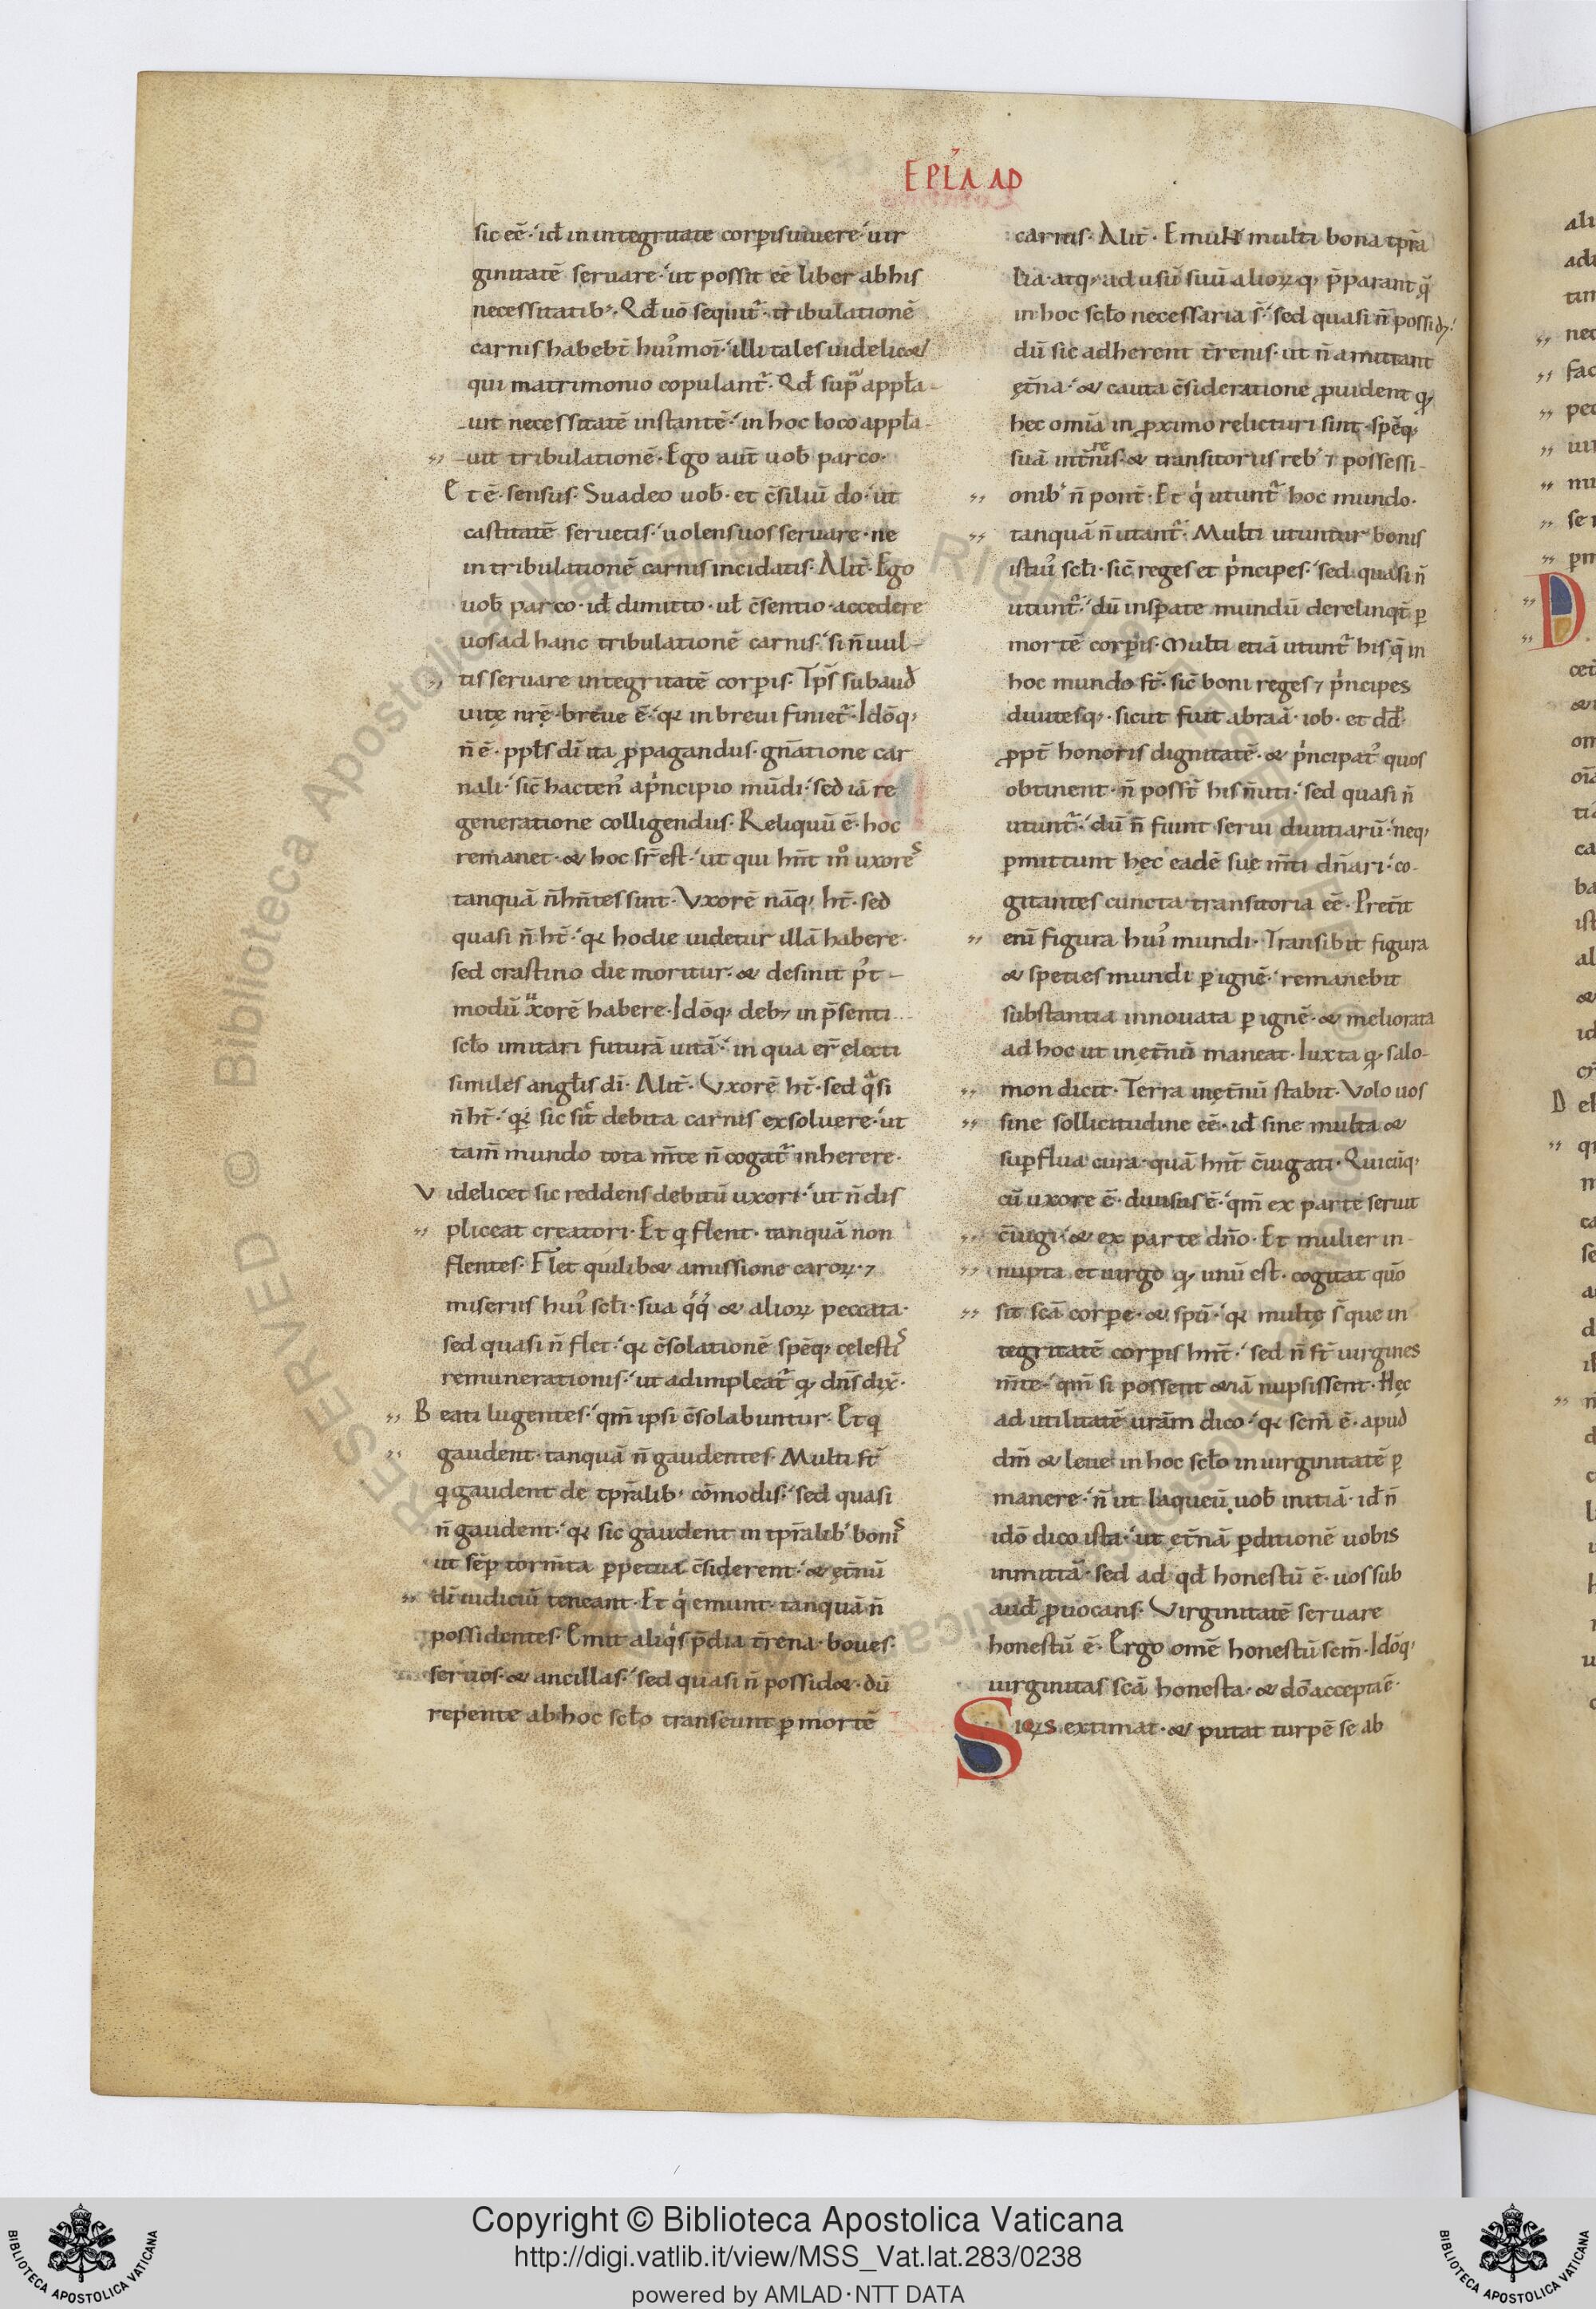 EPL̓A AD
sic eē· id̄ in integritate corꝑis uiuere· uir
ginitatē seruare· ut possit eē liber ab his
necessitatib;· Qd̄ uō sequit᷑· tribulationē
carnis habebt̄ hui᷒moī· illi tales uidelic&
qui matrimonio copulant᷑· Qd̄ supᵃ appła-
uit necessitatē instantē· in hoc loco appła-
uit tribulationē· Ego aut̄ uob̄ parco·
Et ē· sensus· Suadeo uob̄· et c̄siliū do· ut
castitatē seruetis· uolens uos seruare· ne
in tribulationē carnis incidatis· Alit̄· Ego
uob̄ parco· id̄ dimitto· ul̄ c̄sentio· accedere
uos ad hanc tribulationē carnis· si n̄ uul-
tis seruare integritatē corꝑis· Tp̄s subaud̄
uitę nrę̄· breue ē· qꝛ in breui finiet᷑· Idōq;
n̄ ē· ppłs dī ita ꝓpagandus· gn̄atione car
nali· sic̄ hacten᷒ a pͥncipio mūdi· sed iā re
generatione colligendus· Reliquū ē· hoc
remanet· & hoc sr̄ est· ut qui hn̄t mͦ uxorēˢ
tanquā n̄ hn̄tes sint· Vxorē nāq; ht̄· sed
quasi n̄ ht̄· qꝛ hodie uidetur illā habere·
sed crastino die moritur· & desinit p᷒t-
modū uxorē habere· Idōq; deb; in p̄senti
scło imitari futurā uitā· in qua er̄ electi
similes angłis dī· Alit̄· Vxorē ht̄· sed qͣsi
n̄ ht̄· qꝛ sic sit̄ debita carnis exsoluere· ut
tam̄ mundo tota m̄te n̄ cogat᷑ inherere·
Videlicet sic reddens debitū uxori· ut n̄ dis
pliceat creatori· Et q flent· tanquā non
flentes· Flet quilib& amissione caroꝝ· ⁊
miseriis hui᷒ scłi· sua qͥq᷒ & alioꝝ peccata·
sed quasi n̄ flet· qꝛ c̄solationē spēq; celestiˢ
remunerationis· ut adimpleat᷑ qͩ dn̄s dix̄·
Beati lugentes· qm̄ ipsi c̄solabuntur· Et q
gaudent· tanquā n̄ gaudentes· Multi st̄
q gaudent de tpr̄alib; cōmodis· sed quasi
n̄ gaudent· qꝛ sic gaudent in tpr̄alib; boniˢ
ut sēp torm̄ta ꝑpetua c̄siderent· & ęt̄nū
dī iudiciū teneant· Et qͥ emunt· tanquā n̄
possidentes· Emit aliqͥs p̄dia t̄rena· boues·
seruos· & ancillas· sed quasi n̄ possid&· dū
repente ab hoc scło transeunt ꝑ mortē
carnis· Alit̄· Emunt multi bona tpr̄a
lia· atq; ad usū suū alioꝝq; p̄parant q̄
in hoc scło necessaria s̄· sed quasi n̄ possid;·
dū sic adherent t̄renis· ut n̄ amittant
ęt̄na· & cauta c̄sideratione ꝓuident qͩ
hec omīa in ꝓximo relicturi sint· spēq;
suā int̄nis· & transitoriis reb; ⁊ possessi-
onib; n̄ pont̄· Et qͥ utunt᷑ hoc mundo·
tanquā n̄ utant᷑· Multi utuntur bonis
isti᷒ scłi· sic̄ reges et pͥncipes· sed quasi n̄
utunt᷑· dū insꝑate mundū derelinqt̄ ꝑ
mortē corꝑis· Multi etiā utunt᷑ his q̄ in
hoc mundo st̄· sic̄ boni reges ⁊ pͥncipes
diuitesq;· sicut fuit abraā· iob· et dd̄·
ꝓpt̄ honoris dignitatē· & pͥncipat᷒ quos
obtinent· n̄ posst̄ his n̄ uti· sed quasi n̄
utunt᷑· dū n̄ fiunt serui diuitiarū· neq;
ꝑmittunt hęc eadē suę m̄ti dn̄ari· co-
gitantes cuncta transitoria eē· Pret̄it
enī figura hui᷒ mundi· Transibit figura
& speties mundi ꝑ ignē· remanebit
substantia innouata ꝑ ignē· & meliorata
ad hoc ut in ęt̄nū maneat· Iuxta qͩ salo-
mon dicit· Terra in ęt̄nū stabit· Volo uos
sine sollicitudine eē· id̄ sine multa &
suꝑflua cura· quā hn̄t c̄iugati· Quicūq;
cū uxore ē· diuisus ē· qm̄ ex parte seruit
c̄iugi· & ex parte dn̄o· Et mulier in-
nupta et uirgo qͩ unū est· cogitat quō
sit scā corꝑe· & spū· qꝛ multę s̄ que in
tegritatē corꝑis hn̄t· sed n̄ st̄ uirgines
m̄te· qm̄ si possent &iā nupsissent· Hęc
ad utilitatē urām dico· qꝛ scm̄ ē· apud
dm̄ & leue in hoc scło in uirginitatē ꝑ
manere· n̄ ut laqueū uob̄ initiā· id̄ n̄
idō dico ista· ut ęt̄nā ꝑditionē uobis
inmittā· sed ad qd̄ honestū ē· uos sub
aud̄ ꝓuocans· Virginitatē seruare
honestū ē· Ergo omē honestū scm̄· Idōq;
uirginitas scā honesta· & dō accepta ē·
Siqͥs extimat· & putat turpē se ab